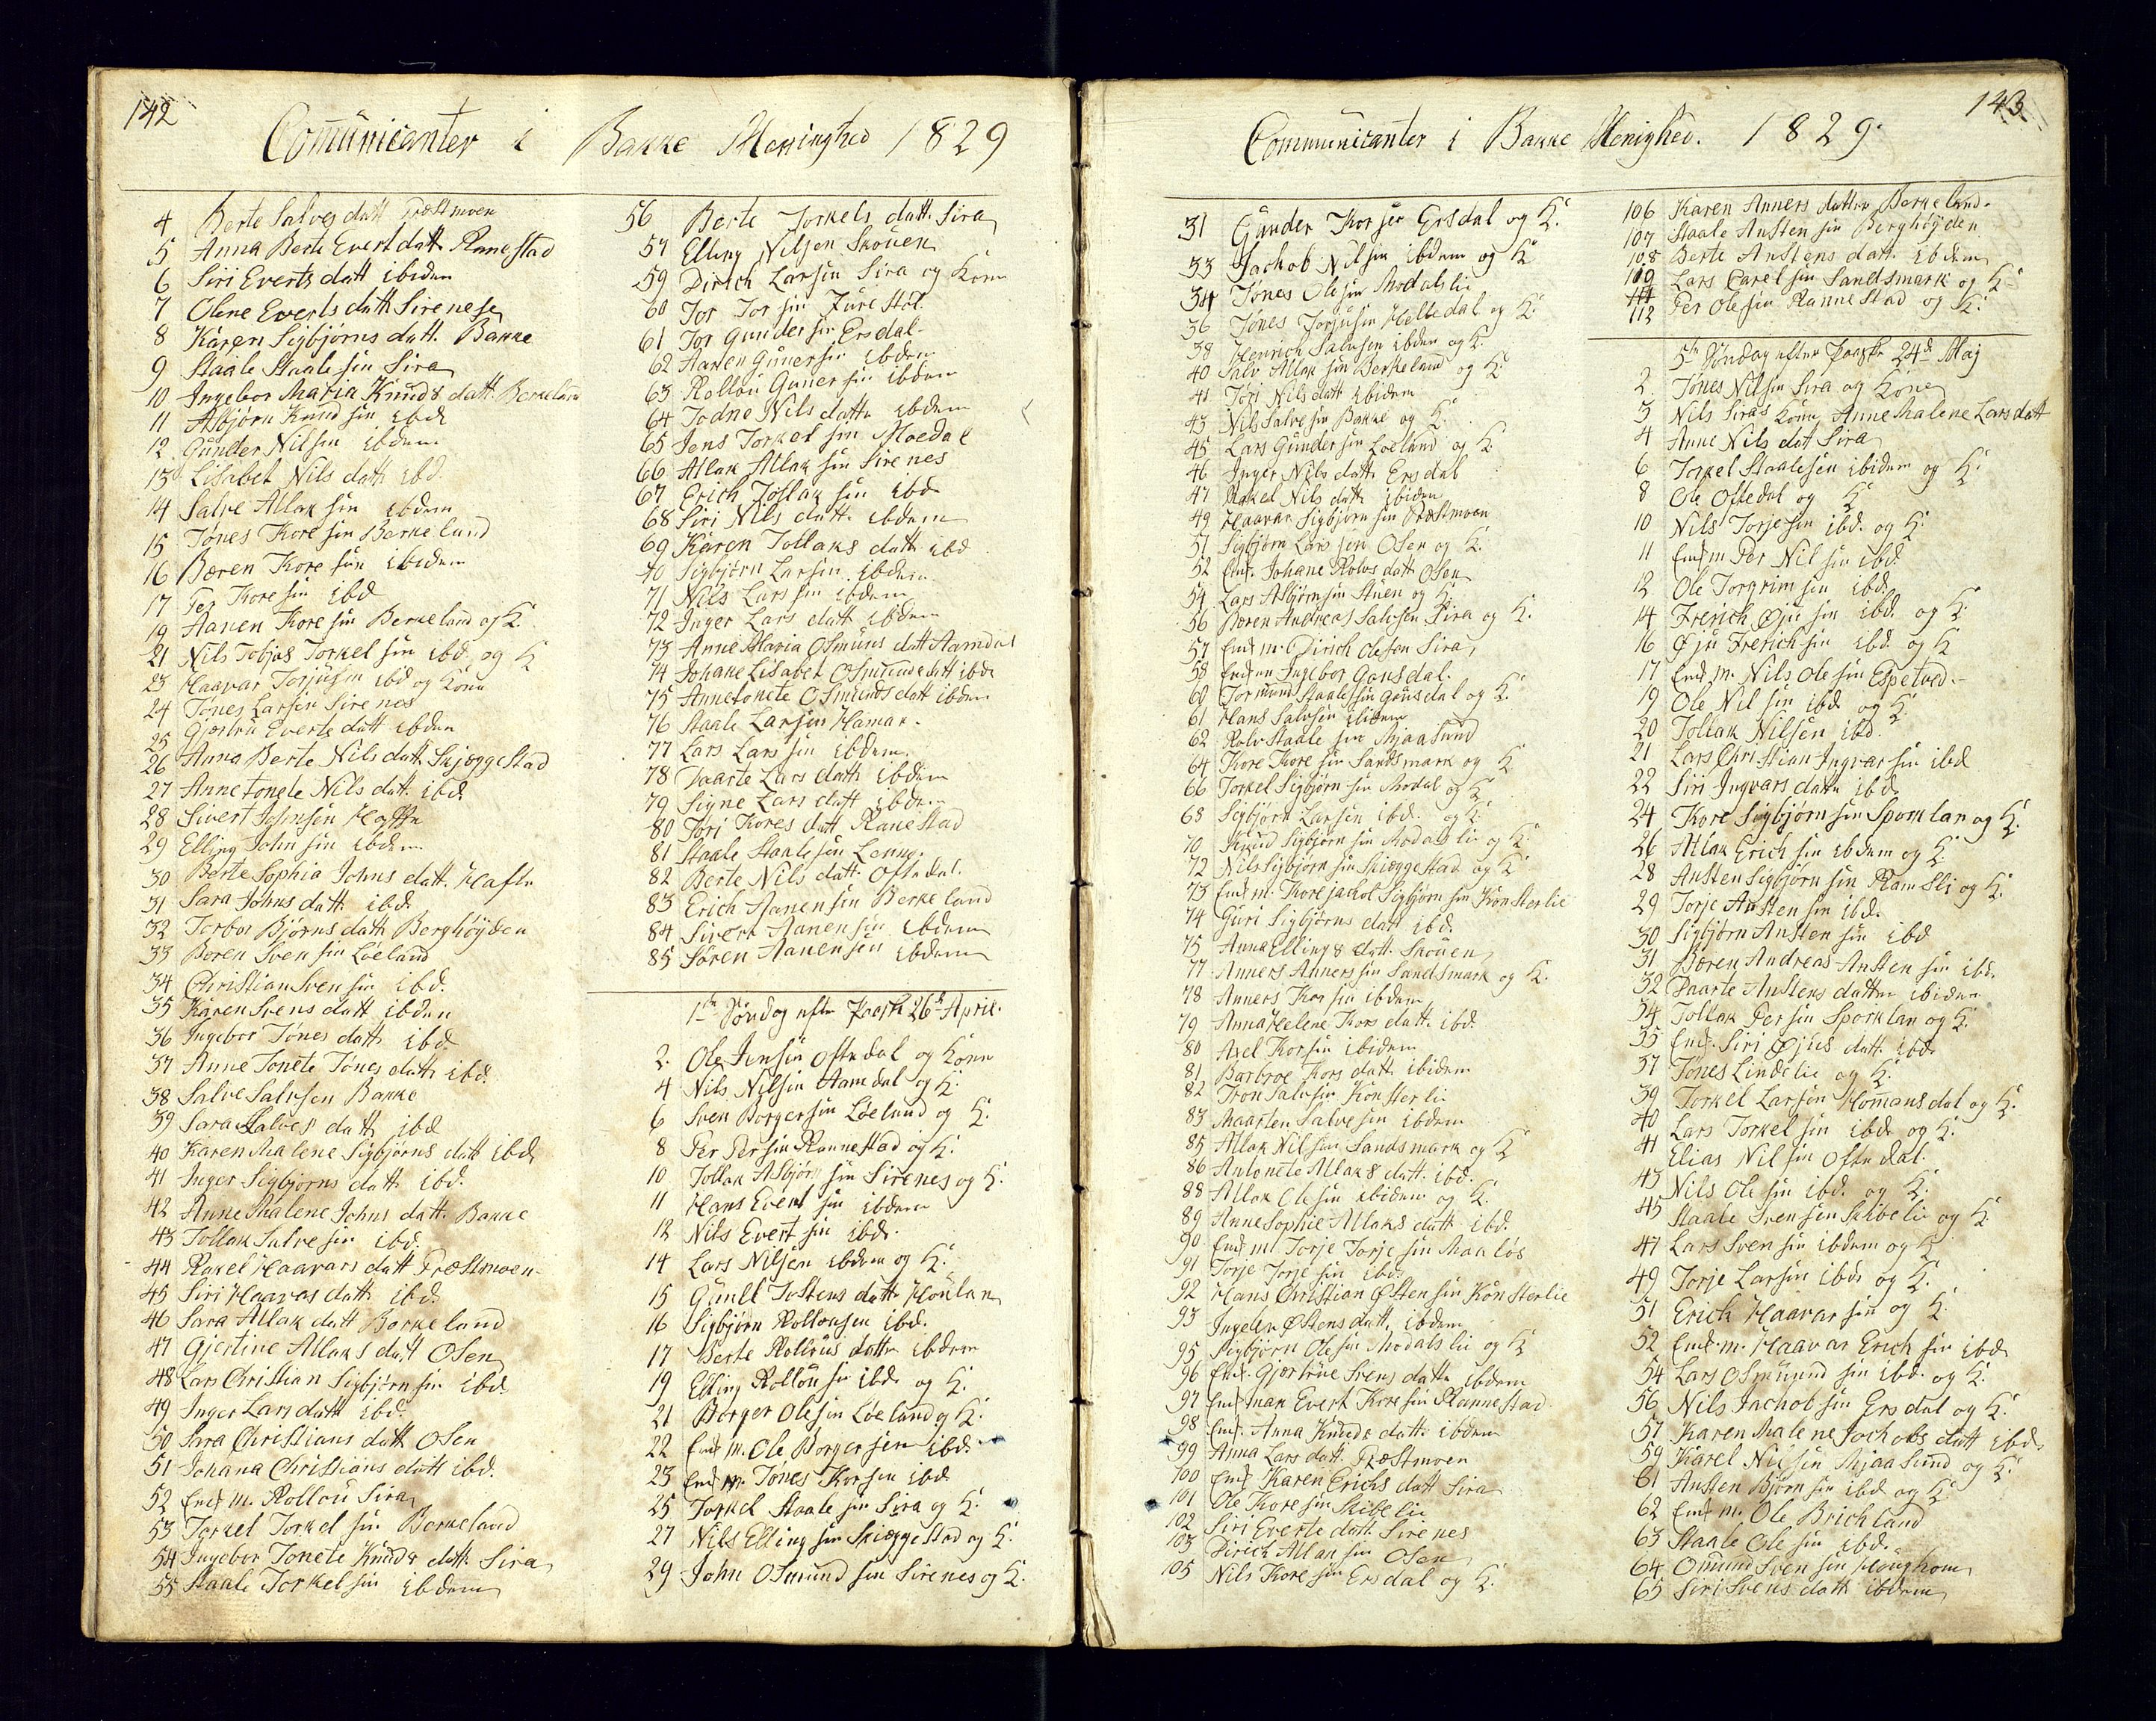 142
Com̄ūnicanter i Bakke Menninghed 1829
4 Berte Salves datt Præstmoen
5 Anna Berte Evert datt. Ranestad
6 Siri Everts datt ibidem
7 Olene Everts datt Sirenese
8 Karen Sigbjørns datt. Bakke
9 Staale Staale sin Sira
10 Ingebor Maria Knuds datt. Berkeland
11 Asbjørn Knud sin ebd
12 Gunder Nilsin ibdem
13 Lisabet Nils datt ebd.
14 Salve Atlak sin ebdem
15 Tønes Kore sin Berkeland
16 Børen Kore sin ibidem
17 Per Kore sin ibd
19 Aanen Kore sin Berkeland og K.
21 Nils Tobjas Torkel sin ibd. og K
23 Haavar Torjusin ibd og Kone
24 Tønes Larsin Sirenes
25 Gjertru Everts datt ebdem
26 Anna Berte Nils datt Skjeggestad
27 Anne Tonete Nils datt. ibd.
28 Sivert Johnsin Hafte
29 Elling John sin ebdem
30 Berte Sophia Johns datt. Hafte
31 Sara Johns datt ibd
32 Torbor Bjørns datt Berghöyden
33 Beren Sven sin Löeland
34 Christian Sven sin ibd.
35 Karen Svens datt ibdem
36 Ingebor Tønes datt ibd
37 Anne Tonete Tønes datt ibd.
38 Salve Salvsen Bakke
39 Sara Salves datt ibd
40 Karen Malene Sigbjørns datt ibd
41 Inger Sigbjørns datt ibd.
42 Anne Malene Johns datt. Bakke
43 Tollak Salve sin ibd.
44 Rakel Haavars datt Præstmoen
45 Siri Haavas datt ibd.
46 Sara Atlak datt Berkeland
47 Gjertine Atlaks datt Osen
48 Lars Christian Sigbjørn sin ibd
49 Inger Lars datt ebd.
50 Sara Christians datt Osen
51 Johana Christians datt ibd.
52 Enk m. Rollou Sira
53 Torkel Torkel sin Berkeland
54 Ingebor Tonete Knuds datt Sira
55 Staale Torkel sin ebdem
56 Berte Torkels datt. Sira
57 Elling Nilsen Skouen
59 Dirich Larsin Sira og Kone
60 Tor Tor sin Furestøl
61 Tor Gunder sin Ersdal
62 Aanen Guner sin ebdem
63 Rollou Guner sin ibdem
64 Todne Nils datte ebdem
65 Jens Torkel sin Moedal
66 Atlak Atlak sin Sirenes
67 Erich Tollak sin ebd
68 Siri Nils datt. ebdem
69 Karen Tollaks datt ebd
70 Sigbjörn Larsin. Ebdem
71 Nils Lars sin ebdem
72 Inger Lars datt ebdem
73 Anne Maria Osmūns datt Aamdal
74 Johane Lisabet Osmunds datt ibd.
75 Anne Tonete Osmunds datt ibdem
76 Staale Larsin Hamar.
77 Lars Lars sin ebdem.
78 Daarte Lars datt ibdem
79 Signe Lars datt ibdem
80 Tori Kores datt Ranestad
81 Staale Staale sin Lenne.
82 Berte Nils datt. Oftedal.
83 Erich Aanen sin Berkeland
84 Sivert Aanen sin ebdem
85 Søren Aanensen ebdem
1te Söndag efter Paaske 26de April.
2. Ole Jensin Oftedal og Kone
4 Nils Nilsin Aamdal og K.
6 Sven Borgersin Löeland og K.
8 Per Per sin Rannestad og K.
10 Tollak Asbjör sin Sirenes og K.
11 Hans Evert sin ibdem
12 Nils Evert sin ibd.
14 Lars Nilsen ebdem og K.
15 Gunil Tostens datt Houlan
16 Sigbjörn Rollousen ibd.
17 Berte Rollous datte ebdem
19 Elling Rollou sin ibd. og K.
21 Borger Olesin Löeland og K.
22 Enk m. Ole Borgersen ibd.
23 Enk m. Tønes Korsin ibd
25 Torkel Staale sin Sira og K.
27 Nils Elling sin Skieggestad og K.
29 John Osmund sin Sirenes og K.
143
Communicanter i Bakke Menighed. 1829.
31 Gunder Korsen Ersdal og K.
33 Jachob Nilsin ibdem og K
34 Tønes Olesin Modalsli
36 Tønes Torjusin Helledal og K.
38 Henrich Salvesen ebdem og K.
40 Salv Atlak sin Berkeland og K.
41 Tori Nils datt ebidem
43 Nils Salve sin Bakke og K.
45 Lars Gunder sin Loeland og K
46 Inger Nils datt Ersdal
47 Rakel Nils datt ebidem
49 Haavar Sigbjørn sin Præstmoen
51 Sigbjørn Lars sen Osen og K.
52 Enk. Johane Rolvs datt Osen
54 Lars Asbjørn sin Stuen og K
56 Søren Andreas Salvsen Sira og K.
57 Enk m. Dirich Olesen Sira
58 Enken Ingebor Gousdal.
60 Tormund Staalessin Gousdal og K.
61 Hans Salvsin ibidem
62 Rolv Staale sin Mjaasund
64 Kore Kore sin Sandsmark og K
66 Torkel Sigbjørn sin Modal og K
68 Sigbjørn Larsin ibd. og K.
70 Knud Sigbjörn sin Modalsli og K.
72 Nils Sigbjørn sin Skieggestad og K.
73 Enk m. Kore Jachob Sigbjørn sin Konsterlie
74 Guri Sigbjørns datt ibd.
75 Anna Ellings datt. Skouen
77 Anners Anners sin Sandsmark og K.
78 Anners Kor sin ibdem
79 Anna Helene Kors datt. ibd.
80 Axel Korsin ibidem
81 Barbroe Kors datt. ibidem
82 Tron Salvsin Konsterli
83 Maarten Salvesin ibdem
85 Atlak Nilsin Sandsmark og K
86 Antonete Atlaks datt. ibd.
88 Atlak Olesin ebidem og K.
89 Anne Sophie Atlaks datt ibd.
90 Enk m. Torje Torje sin Maalös
91 Torje Torje sin ibd.
92 Hans Christian Østen sin Konsterlie
93 Ingeler Østens datt. ibdem
95 Sigbjørn Olesin Modalsli og K
96 Enk. Gjertrue Svens datte ibdem
97 Enkman Evert Kore sin Rannestad
98 Enk. Anna Knuds datt. ibdem
99 Anna Lars datt. Præstmoen
100 Enk Karen Erichs datt Sira
101 Ole Kore sin Skibelie
102 Siri Everte datt Sirenes
103 Dirich Atlak sin Osen
105 Nils Kore sin Ersdal og K.
106 Karen Anners datter Berkeland.
107 Staale Austen sin Berghöyden
108 Berte Austens datt. ebdem
109 Lars Carel sin Sandsmark og K
112 Per Olesin Rannestad og K.
5te Söndag efter Paaske 24de Maj
2. Tønes Nilsin Sira og Kone
3 Nils Siras Kone Anne Malene Lars datt
4 Anne Nils dat Sira
6 Torkel Staalesen ibidem og K.
8 Ole Oftedal og K
10 Nils Torjesin ibd. og K.
11 Enk m Per Nil sin ibd.
12 Ole Torgrim sin ibd.
14 Frerich Øju sin ibd. og K.
16 Øju Frerich sin ebd og K
17 Enk m. Nils Ole sin Espetved.
19 Ole Nil sin ibd. og K.
20 Tollak Nilsen ibd.
21 Lars Christian Ingvar sin ibd
22 Siri Ingvars datte ibd
24 Kore Sigbjørn sin Sporklan og K.
26 Atlak Erich sin ebdem og K.
28 Austen Sigbjørn sin Ramsli og K.
29 Torje Austen sin ibd.
30 Sigbjörn Austen sin ibd
31 Bæren Andreas Austen sin ibd.
32 Daarte Austens datter ibidem
34 Tollak Per sin Sporklan og K.
35 Enk. Siri Øjus datt. ibd.
37 Tønes Lindelie og K.
39 Torkel Larsin Hom̄ansdal og K.
40 Lars Torkel sin ibd. og K.
41 Elias Nil sin Oftedal.
43 Nils Ole sin ibd. og K.
45 Staale Svensen Skibelie og K.
47 Lars Sven sin ibdem og K
49 Torje Larsin ibd. og K.
51 Erich Haavar sin og K
52 Enk.m. Haavar Erich sin ibd
54 Lars Osmūund sin ibd. og K.
56 Nils Jachob sin Ersdal og K.
57 Karen Malene Jachobs datt ibd.
59 Karel Nilsin Mjaasund og K.
61 Austen Bjørn sin ibd og K.
62 Enk m. Ole Brichland
63 Staale Ole sin ibd.
64 Omund Sven sin Houghom
65 Siri Svens datt ibdem